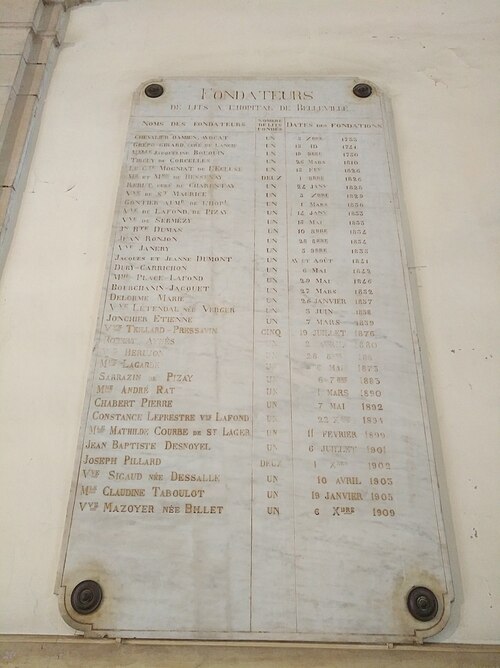 FONDATEURS
DE LITS A L'HOPITAL DE BELLEVILLE
NOMS DES FONDATEURS NOMBRE DE LITS FONDÉS DATES DES FONDATIONS
CHEVALIER DAMIEN, AVOCAT UN 3 XBRE 1733
UN 12 ID 1741
UN 1750
TIRCUY DE CORCELLES UN 26 MARS 1810
LE CTE MOGNIAT DE L'ECLUSE UN 15 FEV 1826
MR ET MME DE DEUX 1826
CURÉ DE CHARENTAY UN 24 JANV 1828
VVE DE ST MAURICE UN 1829
GONTIER UN 1 MARS 1830
VVE DE LAFOND DE PIZAY UN 14 JANV 1833
VVE DE SERMEZY UN 15 MAI 1833
DUMAS UN 10 1834
JEAN RONJON UN 28 1834
VVE JANERY UN 1838
JACQUES ET JEANNE DUMONT UN AOUT 1841
DURY-GARRICHON UN 6 MAI 1842
MME PLACE-LAFOND UN 20 MAI 1846
BOURCHANIN-JACQUET UN 27 MARS 1852
DELORME MARIE UN 26 JANVIER 1857
VVE LETENDAL NÉE VERGER UN 5 JUIN 1858
JONCHIER ETIENNE UN 7 MARS 1859
VVE TEILLARD-PRESSAVIN CINQ 19 JUILLET 1876
UN 1880
BERUJON UN 28
LAGARDE UN MAI
SARRAZIN DE PIZAY UN 1885
MME ANDRÉ RAT UN 1 MARS 1890
CHABERT PIERRE UN 7 MAI 1892
CONSTANCE LEPRESTRE VVE LAFOND UN 1894
MME MATHILDE COURBE DE ST LAGER UN 11 FEVRIER 1899
JEAN BAPTISTE DESNOYEL UN 6 JUILLET 1901
JOSEPH PILLARD DEUX 1 XBRE 1902
VVE SIGAUD NÉE DESSALLE UN 10 AVRIL 1903
MLLE CLAUDINE TABOULOT UN 19 JANVIER 1905
VVE MAZOYER NÉE BILLET UN 6 XBRE 1909